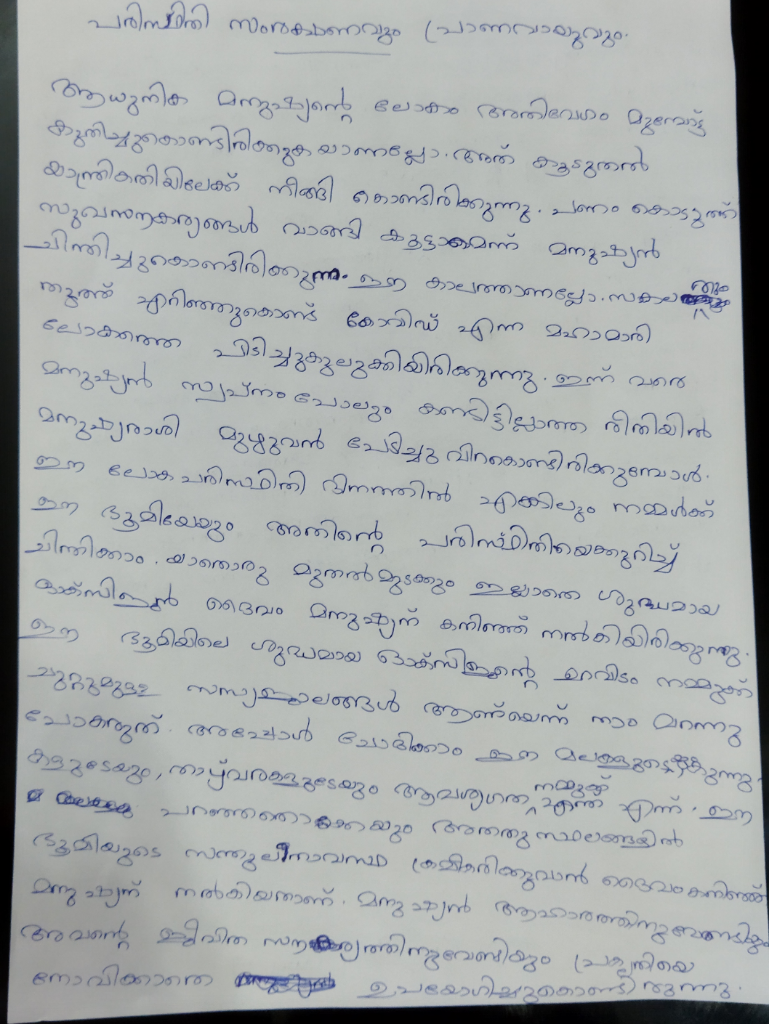 പരിസ്ഥിതി സംരക്ഷണവും പ്രാണവായുവും.
ആധുനിക മനുഷ്യന്റെ ലോകം അതിവേഗം മുമ്പോട്ട്
കുതിച്ചുകൊണ്ടിരിക്കുകയാണല്ലോ. അത് കൂടുതൽ
യാന്ത്രികതിയിലേക്ക് നീങ്ങി കൊണ്ടിരിക്കുന്നു. പണം കൊടുത്ത്
സുഖസൗകര്യങ്ങൾ വാങ്ങി കൂട്ടാമെന്ന് മനുഷ്യൻ
ചിന്തിച്ചുകൊണ്ടിരിക്കുന്ന ഈ കാലത്താണല്ലോ. സകലതും
തൂത്ത് എറിഞ്ഞുകൊണ്ട് കോവിഡ് എന്ന മഹാമാരി
ലോകത്തെ പിടിച്ചുകുലുക്കിയിരിക്കുന്നു. ഇന്ന് വരെ
മനുഷ്യൻ സ്വപ്നം പോലും കണ്ടിട്ടില്ലാത്ത രീതിയിൽ
മനുഷ്യരാശി മുഴുവൻ പേടിച്ചു വിറകൊണ്ടിരിക്കുമ്പോൾ.
ഈ ലോക പരിസ്ഥിതി ദിനത്തിൽ എങ്കിലും നമ്മൾക്ക്
ഈ ഭൂമിയേയും അതിന്റെ പരിസ്ഥിതിയെക്കുറിച്ച്
ചിന്തിക്കാം. യാതൊരു മുതൽമുടക്കും ഇല്ലാതെ ശുദ്ധമായ
ഓക്സിജൻ ദൈവം മനുഷ്യന് കനിഞ്ഞ് നൽകിയിരിക്കുന്നു.
ഈ ഭൂമിയിലെ ശുദ്ധമായ ഓക്സിജന്റെ ഉറവിടം നമ്മുക്ക്
ചുറ്റുമുള്ള സസ്യജാലങ്ങൾ ആണ്യെന്ന് നാം മറന്നു
പോകരുത്. അപ്പോൾ ചോദിക്കാം ഈ മലകളുടെ കുന്നു
കളുടേയും, താഴ്വരകളുടേയും ആവശ്യഗത നമ്മുക്ക് എന്ത എന്ന്. ഈ
പറഞ്ഞതൊക്കെയും അതതു സ്ഥലങ്ങളിൽ
ഭൂമിയുടെ സന്തുലിനാവസ്ഥ ക്രമീകരിക്കുവാൻ ദൈവം കനിഞ്ഞ്
മനുഷ്യന് നൽകിയതാണ്. മനുഷ്യൻ ആഹാരത്തിനുവേണ്ടിയും
അവന്റെ ജീവിത സൗകര്യത്തിനുവേണ്ടിയും പ്രകൃതിയെ
നോവിക്കാതെ ഉപയോഗിച്ചുകൊണ്ടിരുന്നു.